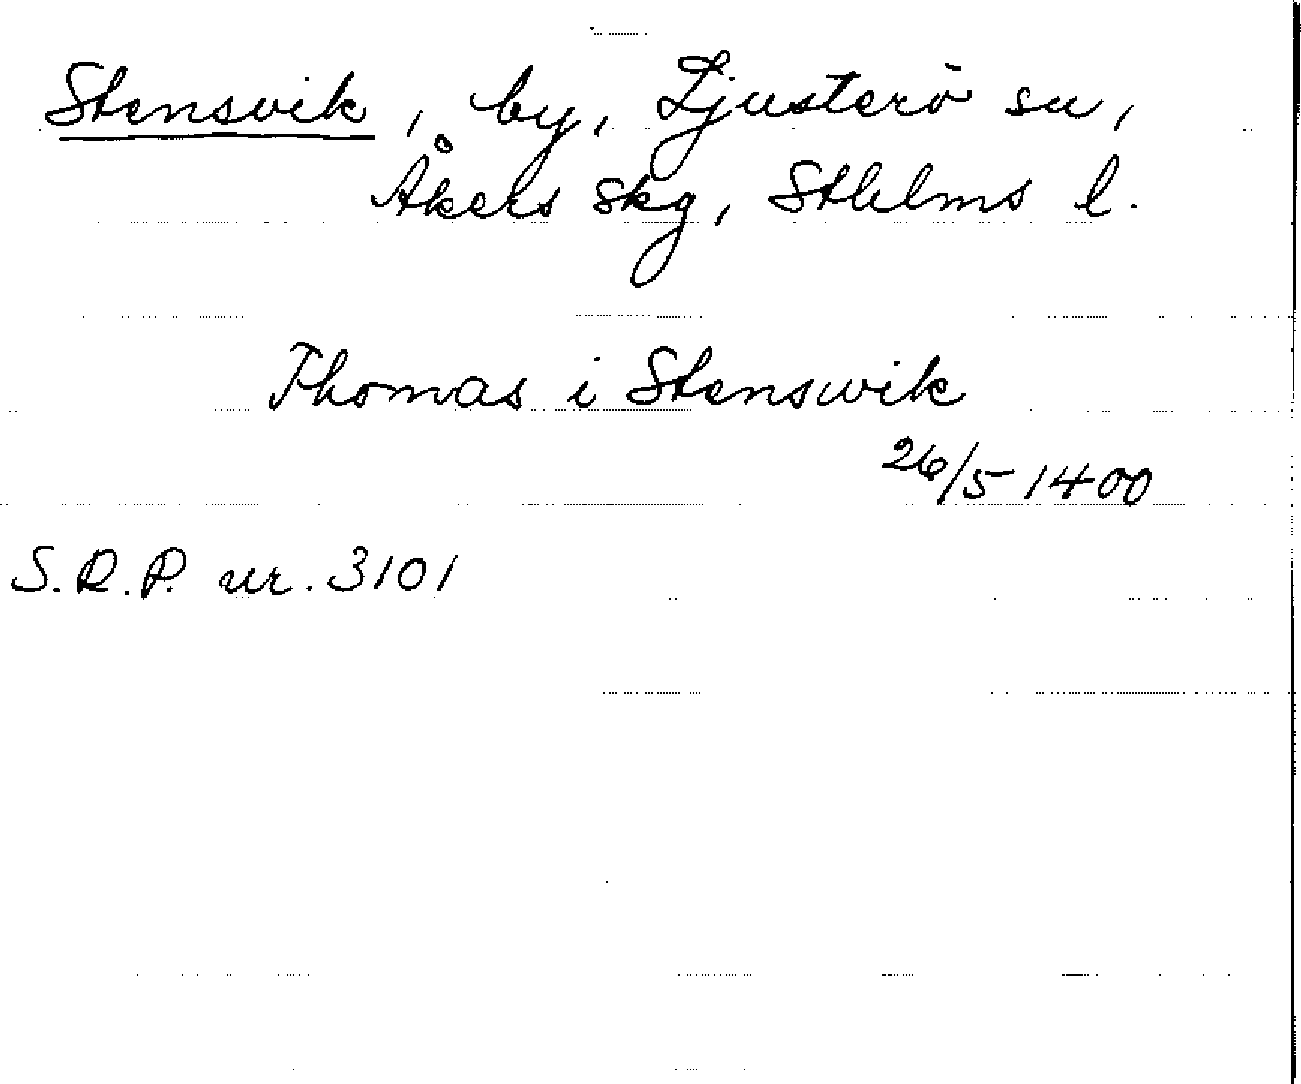 Stensvik, by, Ljusterö sn,
Åkers skg, Sthlms l.
Thomas i Stenswik
26/5 1400
S.R.P. nr. 3101